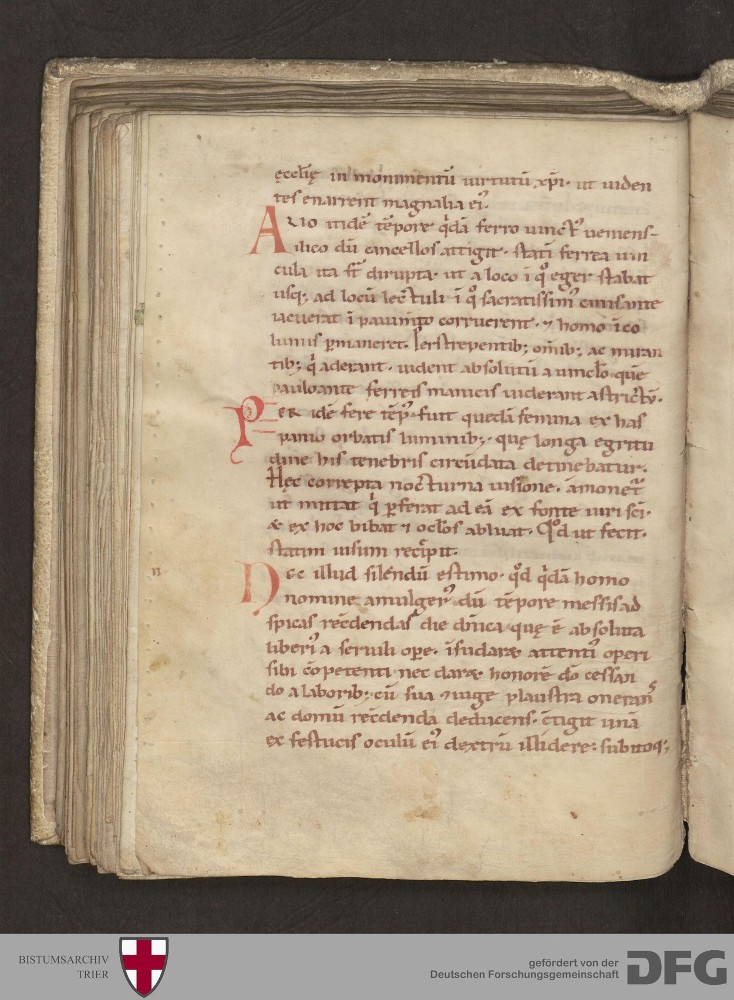 ęcclię in monumentū uirtutū xp̄i· ut uiden
tes enarrent magnalia ei᾿.
ALIO itidē tēpore q̇dā ferro uinct᾿ ueniens·
ilico dū cancellos attigit· statī ferrea uin
cula ita st̄ dirupta· ut a loco ī q̊ eger stabat
usq; ad locū lectuli ī q̊ sacratissim᾿ cunfante
iacuerat ī pauim̄to corruerent· & homo īco
lumis ꝑmaneret. Perstrepentib; om̄ib; ac miran
tib; q̇ aderant· uident absolutū a uinclo· quē
pauloante ferreis manicis uiderant astrictū.
PER idē fere tēp᾿ fuit quedā femina ex his
panio orbatis luminib;· quę longa egritu
dine his tenebris circūdata detinebatur.
Hęc correpta nocturna uisione· āmonet᾿
ut mittat q̇ ꝑferat ad eā ex fonte uiri sc̄i·
& ex hoc bibat & oclōs abluat. Qd̄ ut fecit·
statim uisum recēpit.
n
NEC illud silendū estimo· qd̄ q̇dā homo
nomine amulger᾿ dū tēpore messis ad
spicas recd̄endas die dn̄ica quę ē absoluta
liberi᾿ a seruili oꝑe· īsudaræ attenti᾿ operi
sibi cōpetenti nec daræ honorē dō cessan
do a laborib; cū sua & iuge plaustra onerans
ac domū recd̄enda deducens· cōtigit unā
ex festucis oculū ei᾿ dextrū illidere: subitoq;
BISTUMSARCHIV
TRIER
gefördert von der
Deutschen Forschungsgemeinschaft
DFG